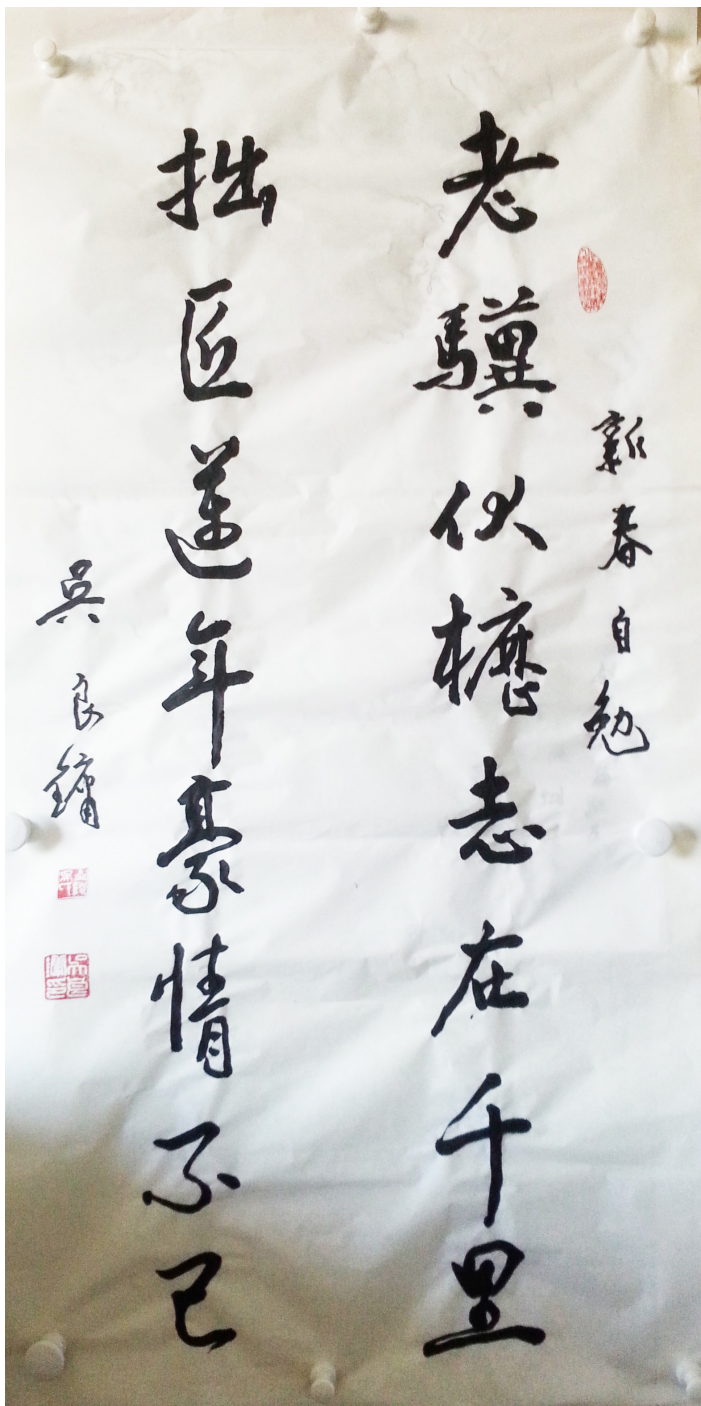 新春自勉
老驥伏櫪志在千里
拙匠邁年豪情不已
吳良鏞